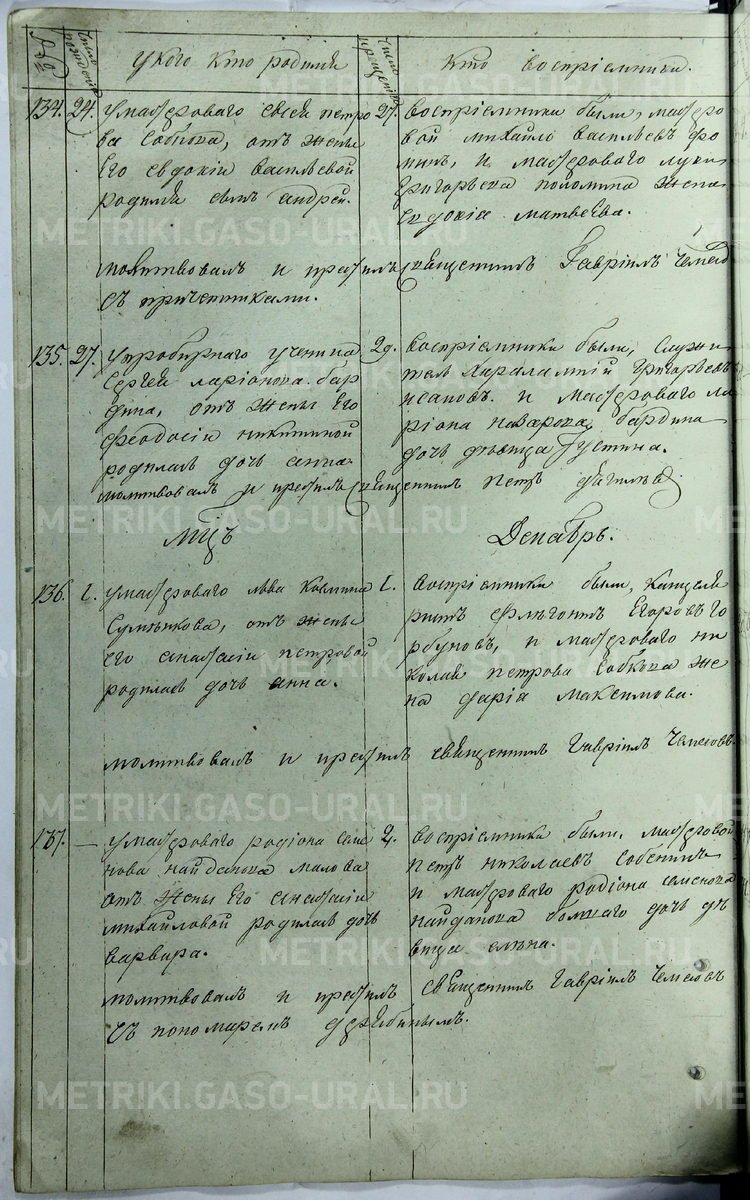 число рожденій
У кого кто родился
число крещенія
Кто воспріемники.
134. 24. умастероваго евсея петро
ва собкова, отъ жены
его евдокіи васильевой
родился сынъ андрей.
27. воспріемники были, мастеро
вой михайло васильевъ фо
минъ, и мастероваго луки
григорьева поломина жена
евдокіа матвеева.
молитвовалъ и крестилъ священникъ Гавріилъ
съ причетниками.
135. 27. упробирнаго ученика
Сергея ларіонова бар
дина, отъ жены его
феодосіи никитиной
родилась дочь анна.
29. воспріемники были, служи
тель Харалампій григорьевъ
исаковъ. и мастероваго ла
ріона назарова бардина
дочь дѣвица Густина.
молитвовалъ и крестилъ священникъ петръ
Мцъ Декабрь.
136. 1. умастероваго льва козмина
Сумінкова, отъ жены
его анастасіи петровой
родилась дочь анна.
1. воспріемники были, канцеля
ристъ флегонтъ Егоровъ го
рбуновъ, и мастероваго ни
колая петрова собкова же
на дарія максимова.
молитвовалъ и крестилъ священникъ гавріилъ
137. — умастероваго родіона семе
нова найданова малова
отъ жены его анастасіи
михайловой родилась дочь
варвара.
2. воспріемники были, мастеровой
петръ николаевъ собенинъ
и мастероваго родіона семенова
найданова большаго дочь дѣ
вица елена.
молитвовалъ и крестилъ священникъ гавріилъ
съ пономаремъ
METRIKI.GASO-URAL.RU